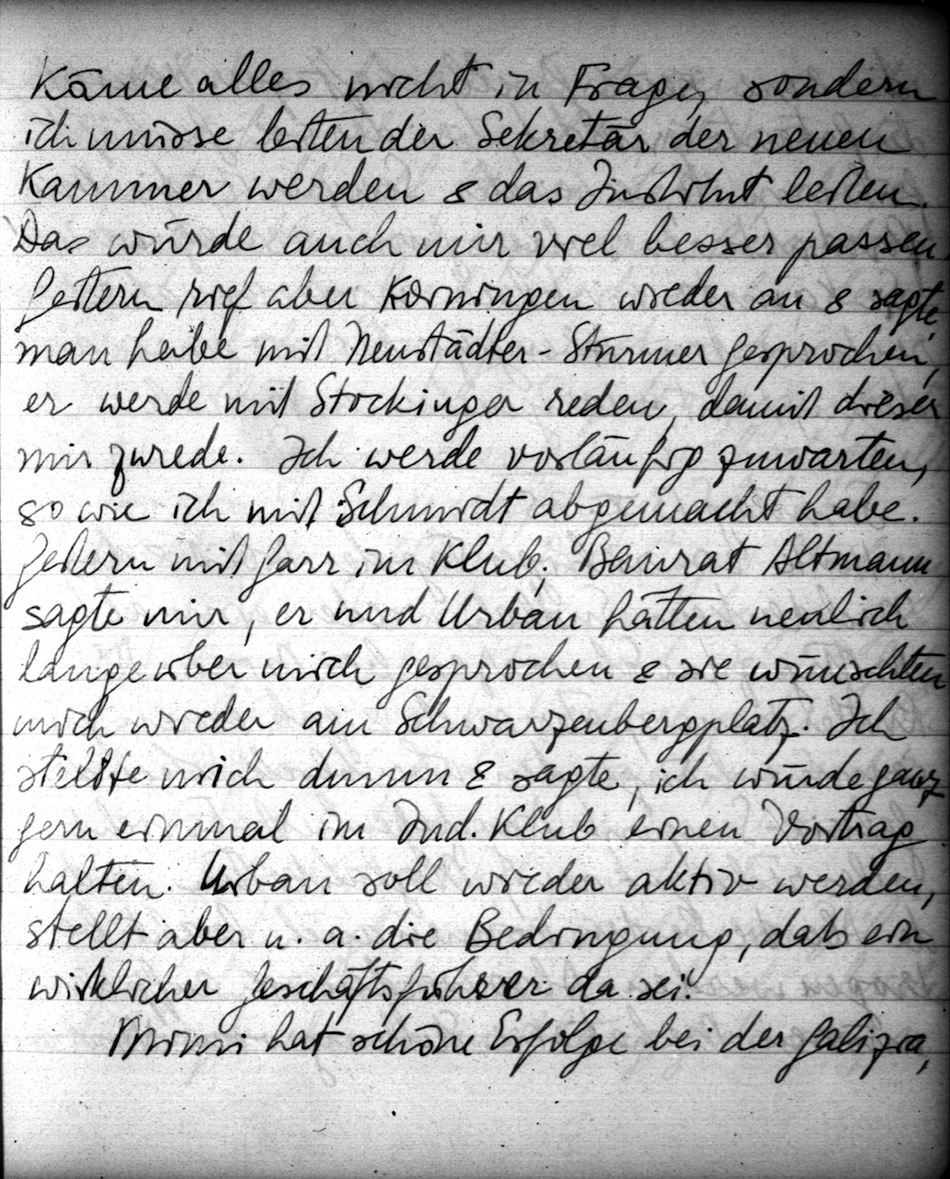 käme alles nicht in Frage, sondern
ich müsse leitender Sekretär der neuen
Kammer werden & das Institut leiten.
Das würde auch mir viel besser passen.
Gestern rief aber Korningen wieder an & sagte,
man habe mit Neustädter-Stürmer gesprochen,
er werde mit Stockinger reden, damit dieser
mir zurede. Ich werde vorläufig zuwarten,
so wie ich mit Schmidt abgemacht habe.
Gestern mit Garr im Klub; Baurat Altmann
sagte mir, er und Urban hätten neulich
lange über mich gesprochen & sie wünschten
mich wieder am Schwarzenbergplatz. Ich
stellte mich dumm & sagte, ich würde ganz
gern einmal im Ind. Klub einen Vortrag
halten. Urban soll wieder aktiv werden,
stellt aber u. a. die Bedingung, daß ein
wirklicher Geschäftsführer da sei!
Mimi hat schöne Erfolge bei der